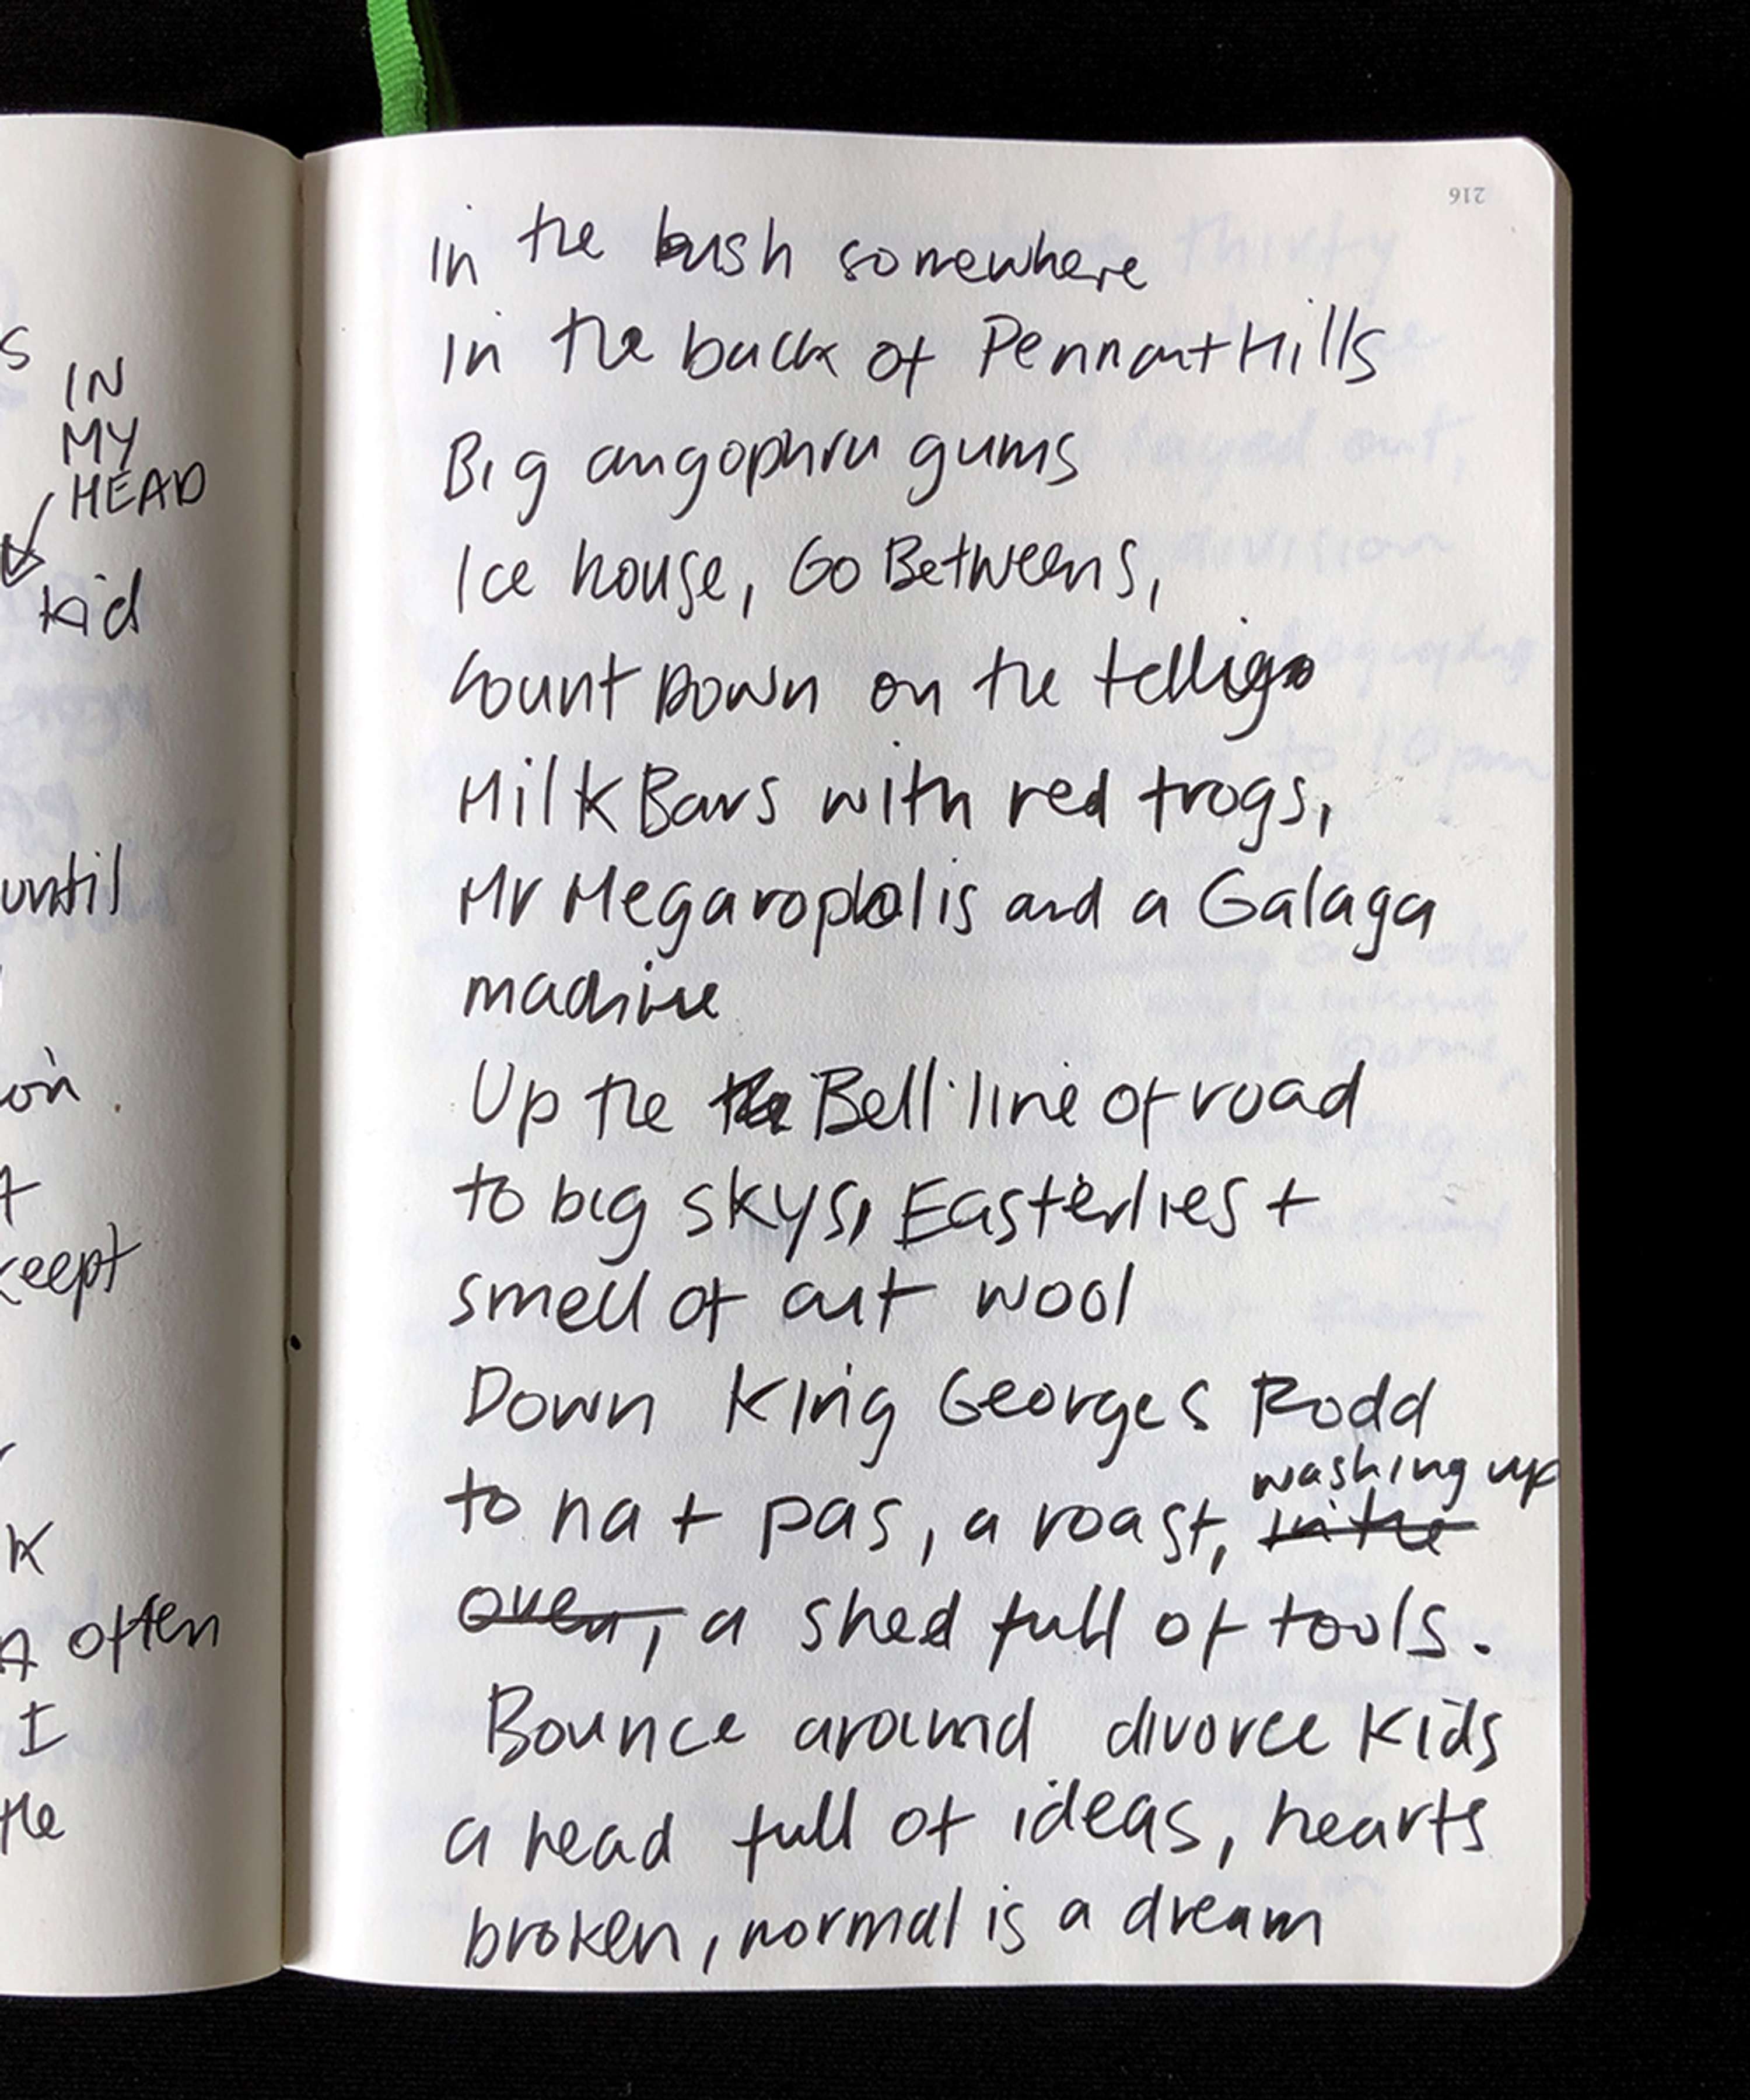 216
in the bush somewhere
in the back of Pennant Hills
Big angophra gums
Ice house, Go Betweens,
Count Down on the
Milk Bars with red frogs,
Mr Megaropolis and a Galaga
machine
Up the the Bell line of road
to big skys, Easterlies +
smell of cut wool
Down King Georges Rodd
washing up
to na + pas, a roast, in the
oven, a shed full of tools.
Bounce around divorce kids
a head full of ideas, hearts
broken, normal is a dream
s
IN
MY
HEAD
kid
until
on.
k
often
I
the